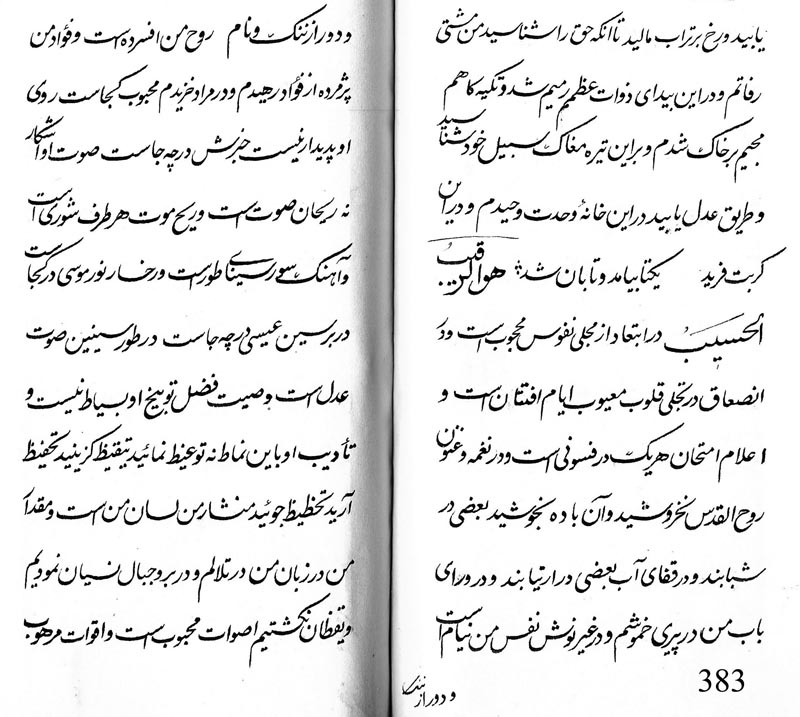 یابید و رخ بر تراب مالید تا آنکه حق را شناسید من مشتی
رفاتم و در این بیدای ذوات عظمم رمیم شد و تکیه گاهم
مجیم بر خاک شدم و بر این تیره مغاک سبیل خود شناسید
و طریق عدل یابید در این خانهٔ وحدت وحیدم و در این
کربت فرید یکتا بیامد و تابان شد هو الرقیب
الحسیب در ابتعاد از مجلی نفوس محبوب است و در
انصعاق در تجلی قلوب معیوب ایام افتتان است و
اعلام امتحان هریک در فسوقی است و در نغمه و غنون
روح القدس نخروشید و آن باده ننوشید بعضی در
شبابند و در قفای آب بعضی در ارتیابند و در ورای
باب من در پیری خموشم و در غیر نوش نفس من نیام است
و دور از ننگ
383
و دور از ننگ و نام روح من افسرده است و فؤاد من
پژمرده از فؤاد رهیدم و در مراد خزیدم محبوب کجاست روی
او پدیدار نیست خبرش در چه جاست صوت او آشکار
نه ریحان صوت است و ریح موت هر طرف شوری است
و آهنگ سور سینای طور است و رخسار نور موسی در کجاست
در بر سین عیسی در چه جاست در طور سینین صوت
عدل است وصیت فضل توبیخ او بسیاط نیست و
تأدیب او باین نماط نه توعیظ نمائید تیقیظ گزینید تحفیظ
آرید تحظیظ جوئید منشار من لسان من است و مقداد
من در زبان من در تلالم و در بر و جبال نسیان نمودیم
و یقظان نگشتیم اصوات محبوب است و اقوات مرهوب